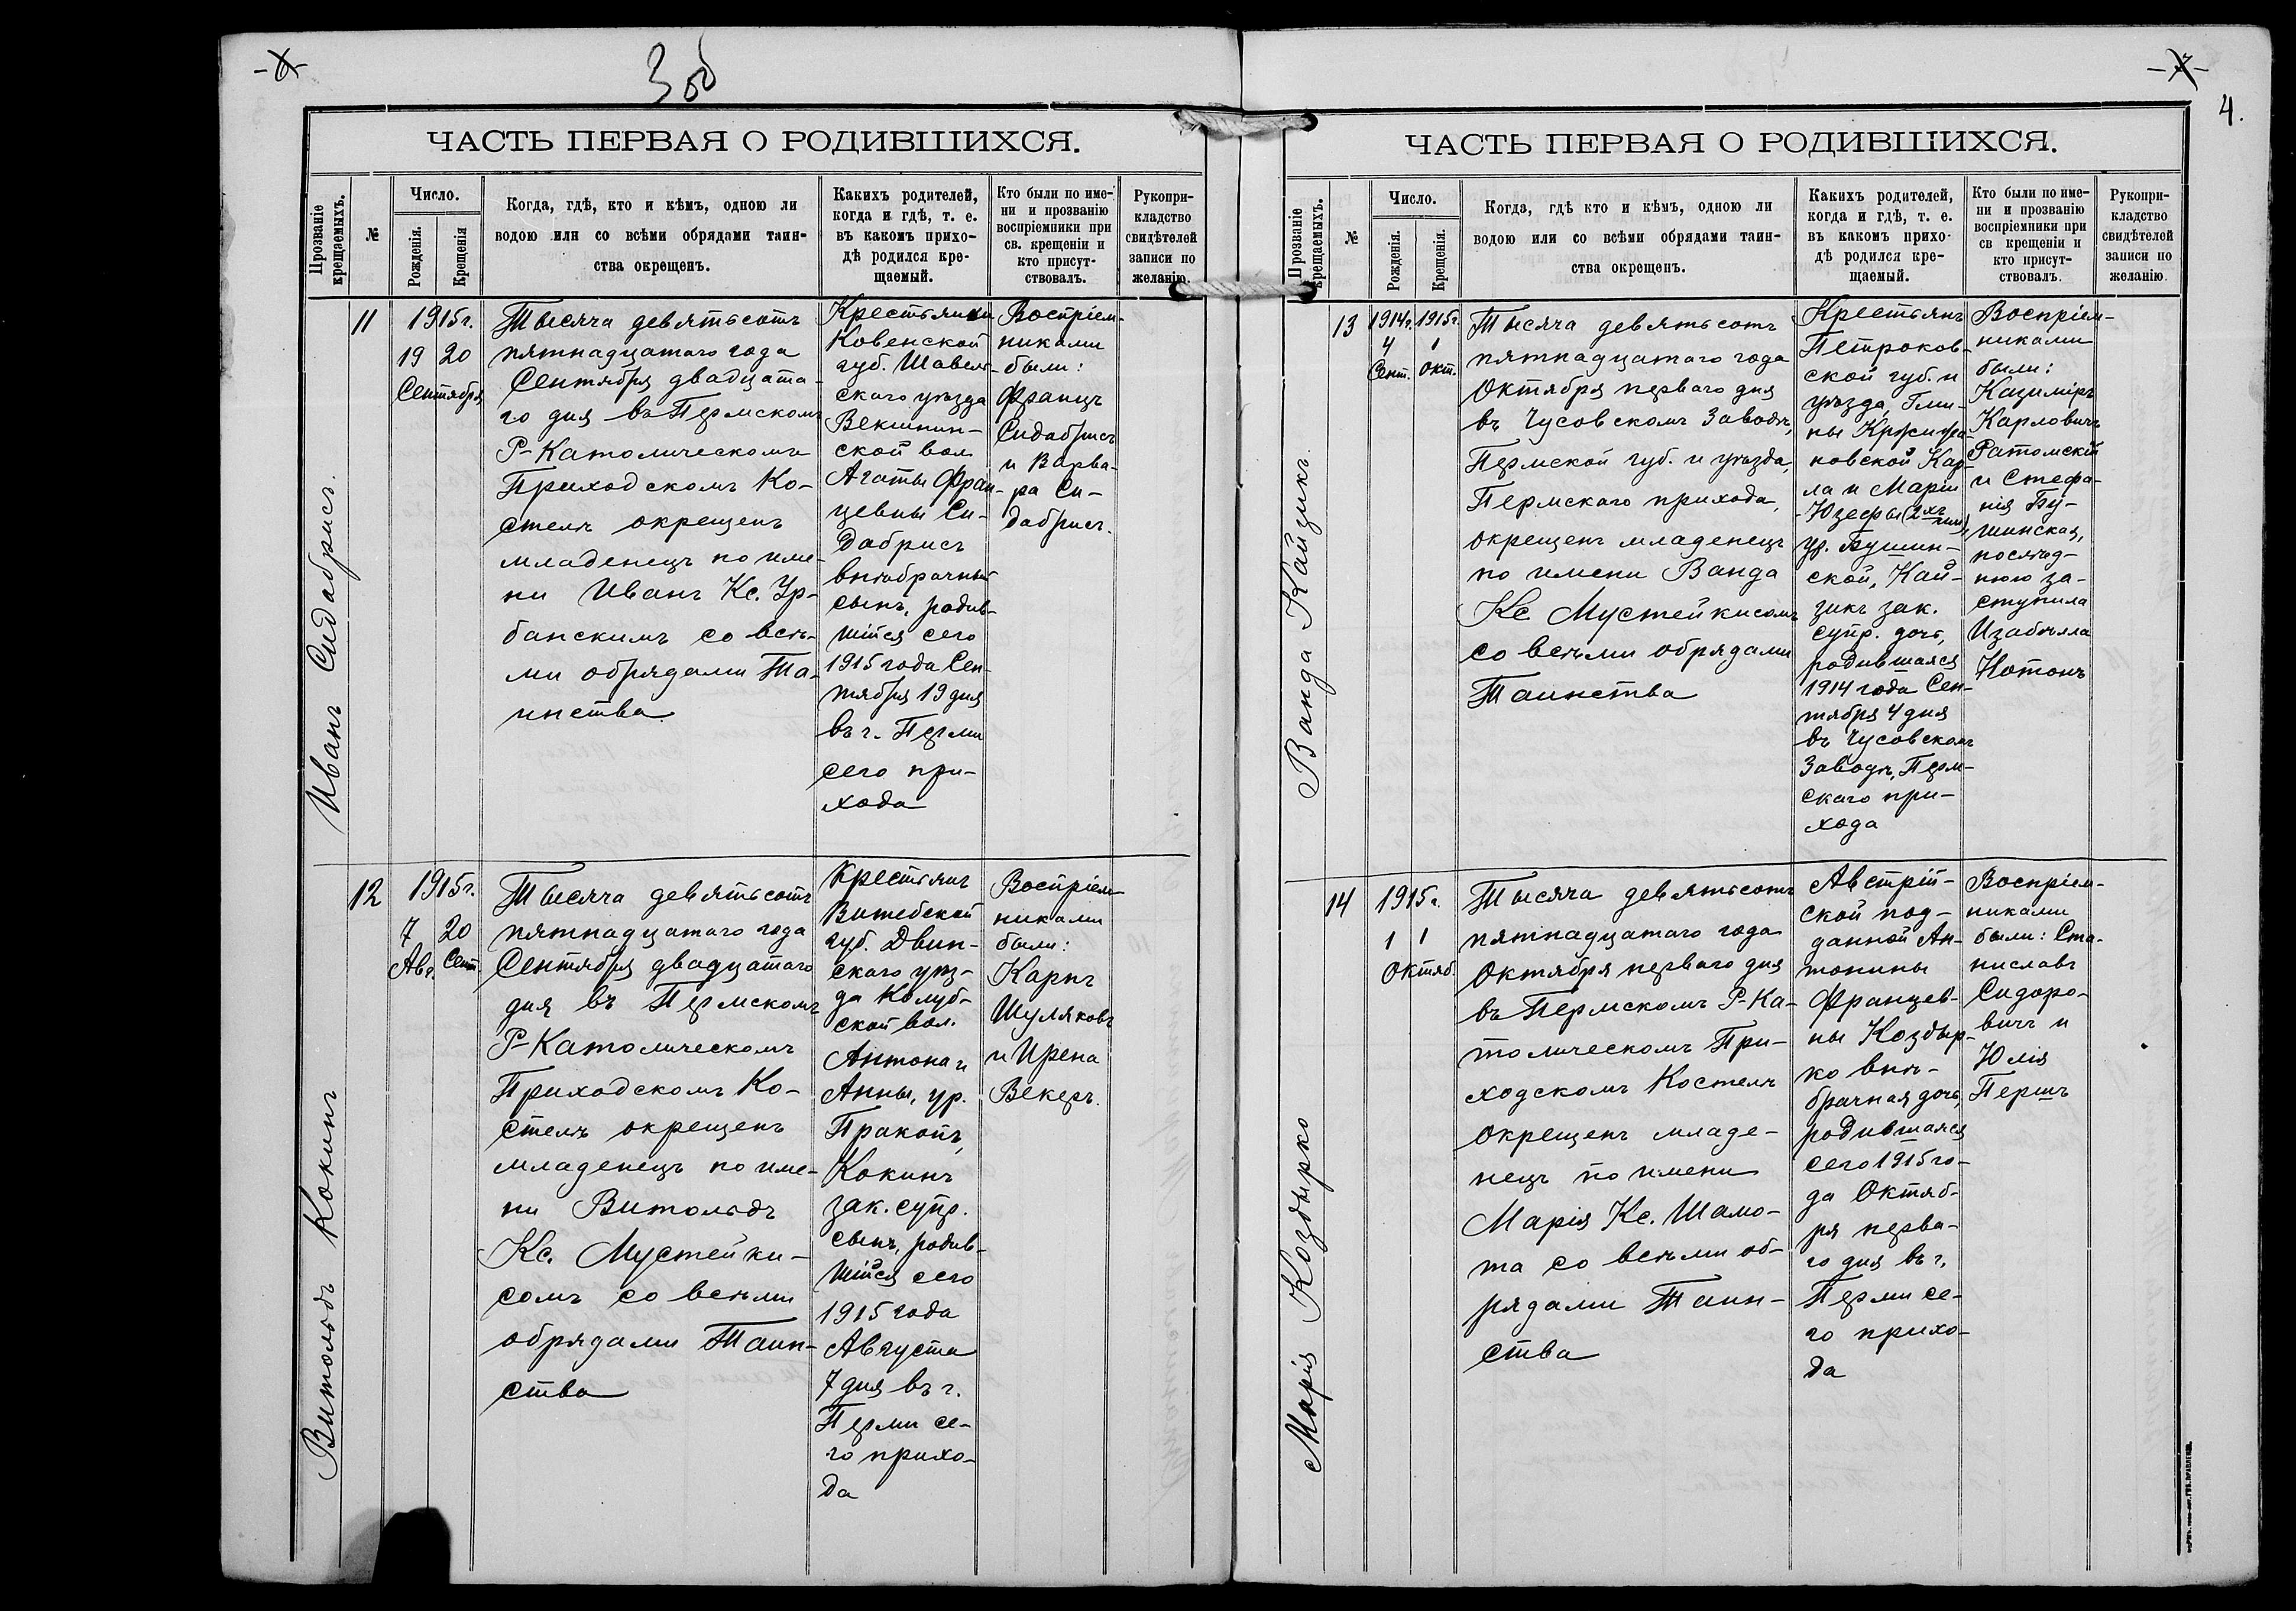 -6-
3 об
ЧАСТЬ ПЕРВАЯ О РОДИВШИХСЯ.
Прозваніе
крещаемыхъ.
№
Число.
Рожденія.
Крещенія
Когда, гдѣ, кто и кѣмъ, одною ли
водою или со всѣми обрядами таин-
ства окрещенъ.
Какихъ родителей,
когда и гдѣ, т. е.
въ какомъ прихо-
дѣ родился кре-
щаемый.
Кто были по име-
ни и прозванію
воспріемники при
св. крещеніи и
кто присут-
ствовалъ.
Рукопри-
кладство
свидѣтелей
записи по
желанію.
Иванъ Сидабрисъ.
11
1915 г.
19 20
Сентября
Тысяча девятьсотъ
пятнадцатаго года
Сентября двадцата-
го дня въ Пермскомъ
Р-Католическомъ
Приходскомъ Ко-
стелѣ окрещенъ
младенецъ по име-
ни Иванъ Кс. Ур-
банскимъ со всѣ-
ми обрядами Та-
инства
Крестьянки
Ковенской
губ. Шавель-
скаго уѣзда
Векшнин-
ской вол.
Агаты Фран-
цевны Си-
дабрисъ
внѣбрачный
сынъ, родив-
шійся сего
1915 года Сен-
тября 19 дня
въ г. Перми
сего при-
хода
Воспріем-
никами
были:
Францъ
Сидабрисъ
и Варва-
ра Си-
дабрисъ.
Витольдъ Кокинъ
12
1915 г.
7 20
Авг. Сент.
Тысяча девятьсотъ
пятнадцатаго года
Сентября двадцатаго
дня въ Пермскомъ
Р-Католическомъ
Приходскомъ Ко-
стелѣ окрещенъ
младенецъ по име-
ни Витольдъ
Кс. Мустейки-
сомъ со всѣми
обрядами Таин-
ства
Крестьянъ
Витебской
губ. Двин-
скаго уѣз-
да Колуб-
ской вол.
Антона и
Анны, ур.
Пракопъ,
Кокинъ
зак. супр.
сынъ, родив-
шійся сего
1915 года
Августа
7 дня въ г.
Перми се-
го прихо-
да
Воспріем-
никами
были:
Карпъ
Шуляковъ
и Ирена
Векеръ.
-7-
4.
ЧАСТЬ ПЕРВАЯ О РОДИВШИХСЯ.
Прозваніе
крещаемыхъ.
№
Число.
Рожденія.
Крещенія.
Когда, гдѣ кто и кѣмъ, одною ли
водою или со всѣми обрядами таин-
ства окрещенъ.
Какихъ родителей,
когда и гдѣ, т. е.
въ какомъ прихо-
дѣ родился кре-
щаемый.
Кто были по име-
ни и прозванію
воспріемники при
св крещеніи и
кто присут-
ствовалъ.
Рукопри-
кладство
свидѣтелей
записи по
желанію.
Ванда Кайзикъ.
13
1914 г. 1915 г.
4 1
Сент. Окт.
Тысяча девятьсотъ
пятнадцатаго года
Октября перваго дня
въ Чусовскомъ Заводѣ,
Пермской губ. и уѣзда,
Пермскаго прихода,
окрещенъ младенецъ
по имени Ванда
Кс Мустейкисомъ
со всѣми обрядами
Таинства
Крестьянъ
Петроков-
ской губ. и
уѣзда, Гми-
ны
новской Кар-
ла и Маріи
-Юзефы (2хъ им.),
ур. Бушин-
ской, Кай-
зикъ зак.
супр. дочь,
родившаяся
1914 года Сен-
тября 4 дня
въ Чусовскомъ
Заводѣ, Перм-
скаго при-
хода
Воспріем-
никами
были:
Казиміръ
Карловичъ
Ратомскій
и Стефа-
нія Бу-
шинская,
послѣд-
нюю за-
ступила
Изабѣлла
Нотонъ
Марія Коздырко
14
1915 г.
1 1
Октяб.
Тысяча девятьсотъ
пятнадцатаго года
Октября перваго дня
въ Пермскомъ Р-Ка-
толическомъ При-
ходскомъ Костелѣ
окрещенъ младе-
нецъ по имени
Марія Кс. Шамо-
та со всѣми об-
рядами Таин-
ства
Австрій-
ской под-
данной Ан-
тонины
Францев-
ны Коздыр-
ко внѣ-
брачная дочь,
родившаяся
сего 1915 го-
да Октяб-
ря перва-
го дня въ г.
Перми се-
го прихо-
да
Воспріем-
никами
были: Ста-
ниславъ
Сидоро-
вичъ и
Юлія
Першъ